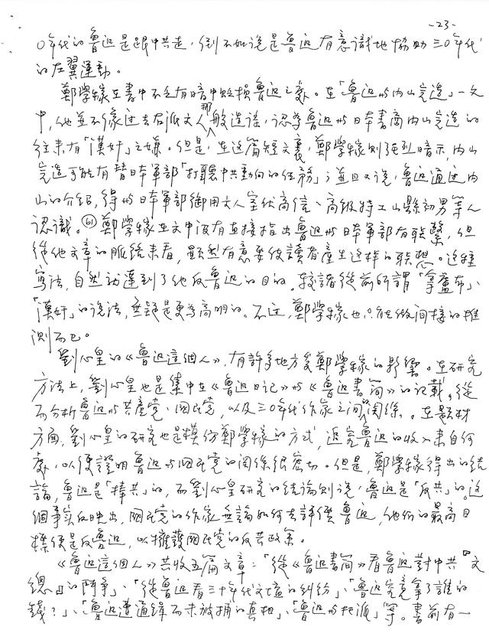 -23-
〇年代的魯迅是跟中共走,倒不如說是魯迅有意識地協助三〇年代
的左翼運動。
鄭學稼在書中不乏有暗中貶損魯迅之處。在「魯迅與內山完造」一文
中,他並不像過去右派文人那般造謠,認為魯迅與日本書商內山完造的
往來有「漢奸」之嫌。但是,在這篇短文裏,鄭學稼則強烈暗示,內山
完造可能有替日本軍部「打聽中共動向的任務」;並且又說,魯迅通過內
山的介紹,得與日本軍部御用文人室伏高信、高級特工山縣初男等人
認識。(61)鄭學稼在文中沒有直接指出魯迅與日本軍部有聯繫,但
從他文章的脈絡來看,顯然有意要使讀者產生這樣的聯想。這種
寫法,自然就達到了他反魯迅的目的。較諸從前所謂「拿盧布」、
「漢奸」的說法,無疑是更為高明的。不過,鄭學稼也只能做同樣的推
測而已。
劉心皇的《魯迅這個人》,有許多地方受鄭學稼的影響。在研究
方法上,劉心皇也是集中在《魯迅日記》與《魯迅書簡》的記載,從
而分析魯迅與共產黨、國民黨,以及三〇年代作家之間的關係。在題材
方面,劉心皇的研究也是模仿鄭學稼的方式,追究魯迅的收入來自何
處,以便證明魯迅與國民黨的關係很密切。但是,鄭學稼得出的結
論,魯迅是「捧共」的,而劉心皇研究的結論則說,魯迅是「反共」的。這
個事實反映出,國民黨的作家無論如何去評價魯迅,他們的最高目
標便是反魯迅,以擁護國民黨的反共政策。
《魯迅這個人》共收五篇文章:「從《魯迅書簡》看魯迅對中共『文
總』的鬥爭」、「從魯迅看三十年代文壇的糾紛」、「魯迅究竟拿了誰的
錢?」、「魯迅遭通緝而未被捕的真相」、「魯迅與托派」等。書前有一